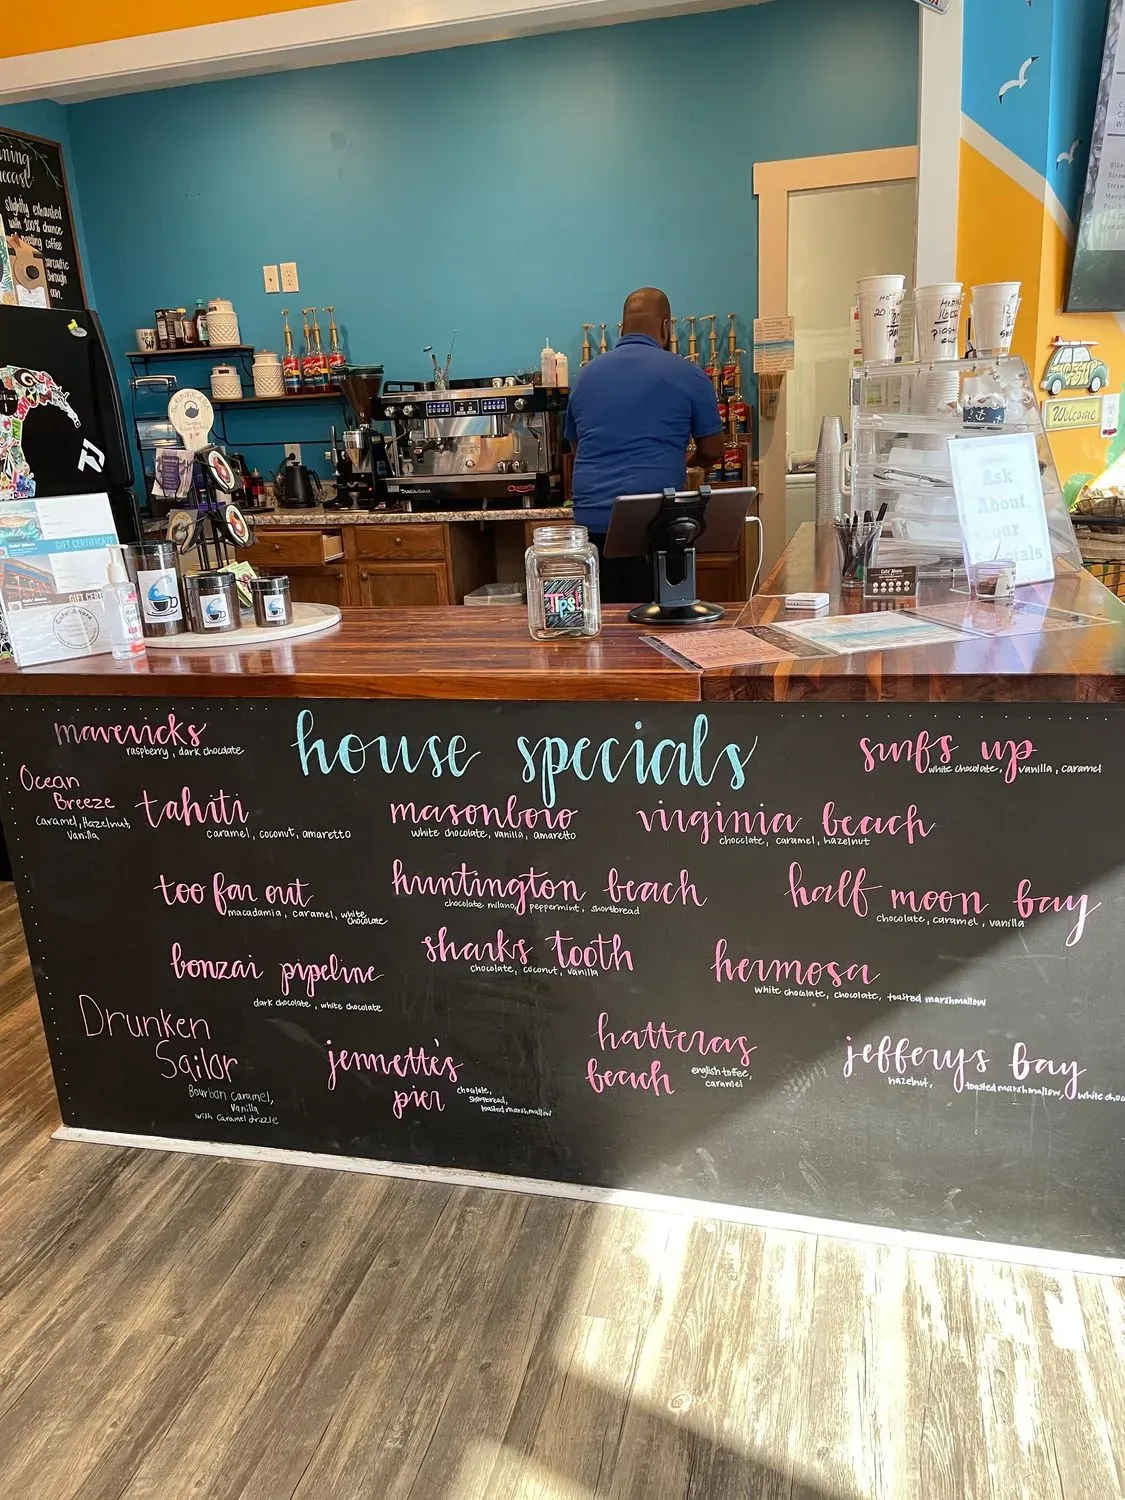 slightly exhausted
with 100% chance
of needing coffee
Welcome
GIFT CERTIFICATE
GIFT CERT
Tips
Ask
About
our
house specials
mavericks
raspberry, dark chocolate
surfs up
white chocolate, vanilla, caramel
Ocean
Breeze
Caramel, Hazelnut,
Vanilla
tahiti
caramel, coconut, amaretto
masonboro
white chocolate, vanilla, amaretto
virginia beach
chocolate, caramel, hazelnut
too far out
macadamia, caramel, white
chocolate
huntington beach
chocolate milano, peppermint, shortbread
half moon bay
chocolate, caramel, vanilla
bonzai pipeline
dark chocolate, white chocolate
sharks tooth
chocolate, coconut, vanilla
hermosa
white chocolate, chocolate, toasted marshmallow
Drunken
Sailor
Bourbon Caramel,
Vanilla
with Caramel drizzle
jennette's
pier
chocolate,
shortbread,
toasted marshmallow
hatteras
beach
english toffee,
caramel
jefferys bay
hazelnut,
toasted marshmallow, white choco